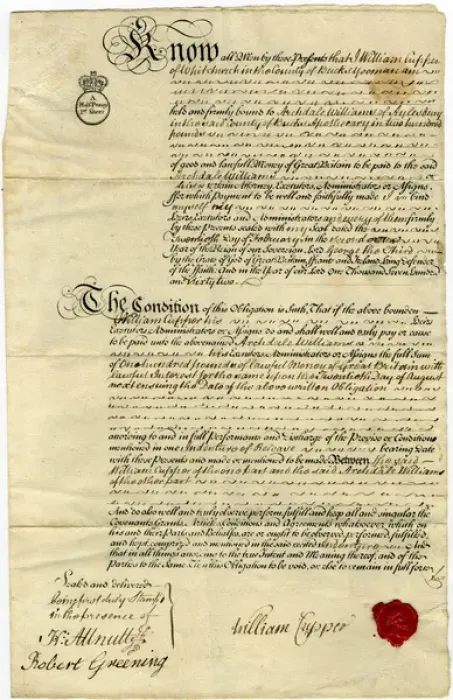 A
Half Penny
pr Sheet
Know all Men by these Presents that I William Cupper
of Whitchurch in the County of Bucks Yeoman am
held and firmly bound to Archdale Williams of Aylesbury
in the said County of Bucks Apothecary in two hundred
pounds
of good and lawful Money of Great Britain to be paid to the said
Archdale Williams
or his certain Attorney, Executors, Administrators or Assigns,
For which Payment to be well and faithfully made I bind
myself my
Heirs Executors and Administrators and every of them firmly
by these Presents sealed with my Seal dated the
Twentieth Day of February in the second
Year of the Reign of our Sovereign Lord George the Third
by the Grace of God of Great Britain, France and Ireland, King, Defender
of the Faith: And in the Year of our Lord One Thousand Seven Hundred
and Sixty two
The Condition of this Obligation is Such, That if the above bounden
William Cupper his Heirs
Executors Administrators or Assigns do and shall well and truly pay or cause
to be paid unto the abovenamed Archdale Williams
his Executors Administrators or Assigns the full Sum
of One hundred pounds of lawful Money of Great Britain with
lawful Interest for the same upon the Twentieth Day of August
next ensuing the Date of the above written Obligation
according to and in full Performance and Discharge of the Proviso or Conditions
mentioned in one Indenture of Release bearing Date
with these Presents and made or mentioned to be made Between the said
William Cupper of the one part and the said Archdale Williams
of the other part
And do also well and truly observe perform fulfill and keep all and singular the
Covenants Grants, Articles Conditions and Agreements whatsoever, which on
his and their Parts and Behalfs, are or ought to be observed, performed, fulfilled,
and kept, comprized and mentioned in the said recited Indenture And
that in all things according to the true Intent and Meaning thereof, and of the
Parties to the Same Then this Obligation to be void, or else to remain in full force
Sealed and delivered
being first duly Stampt
in the presence of
Wm: Allnutt
Robert Greening
William Cupper